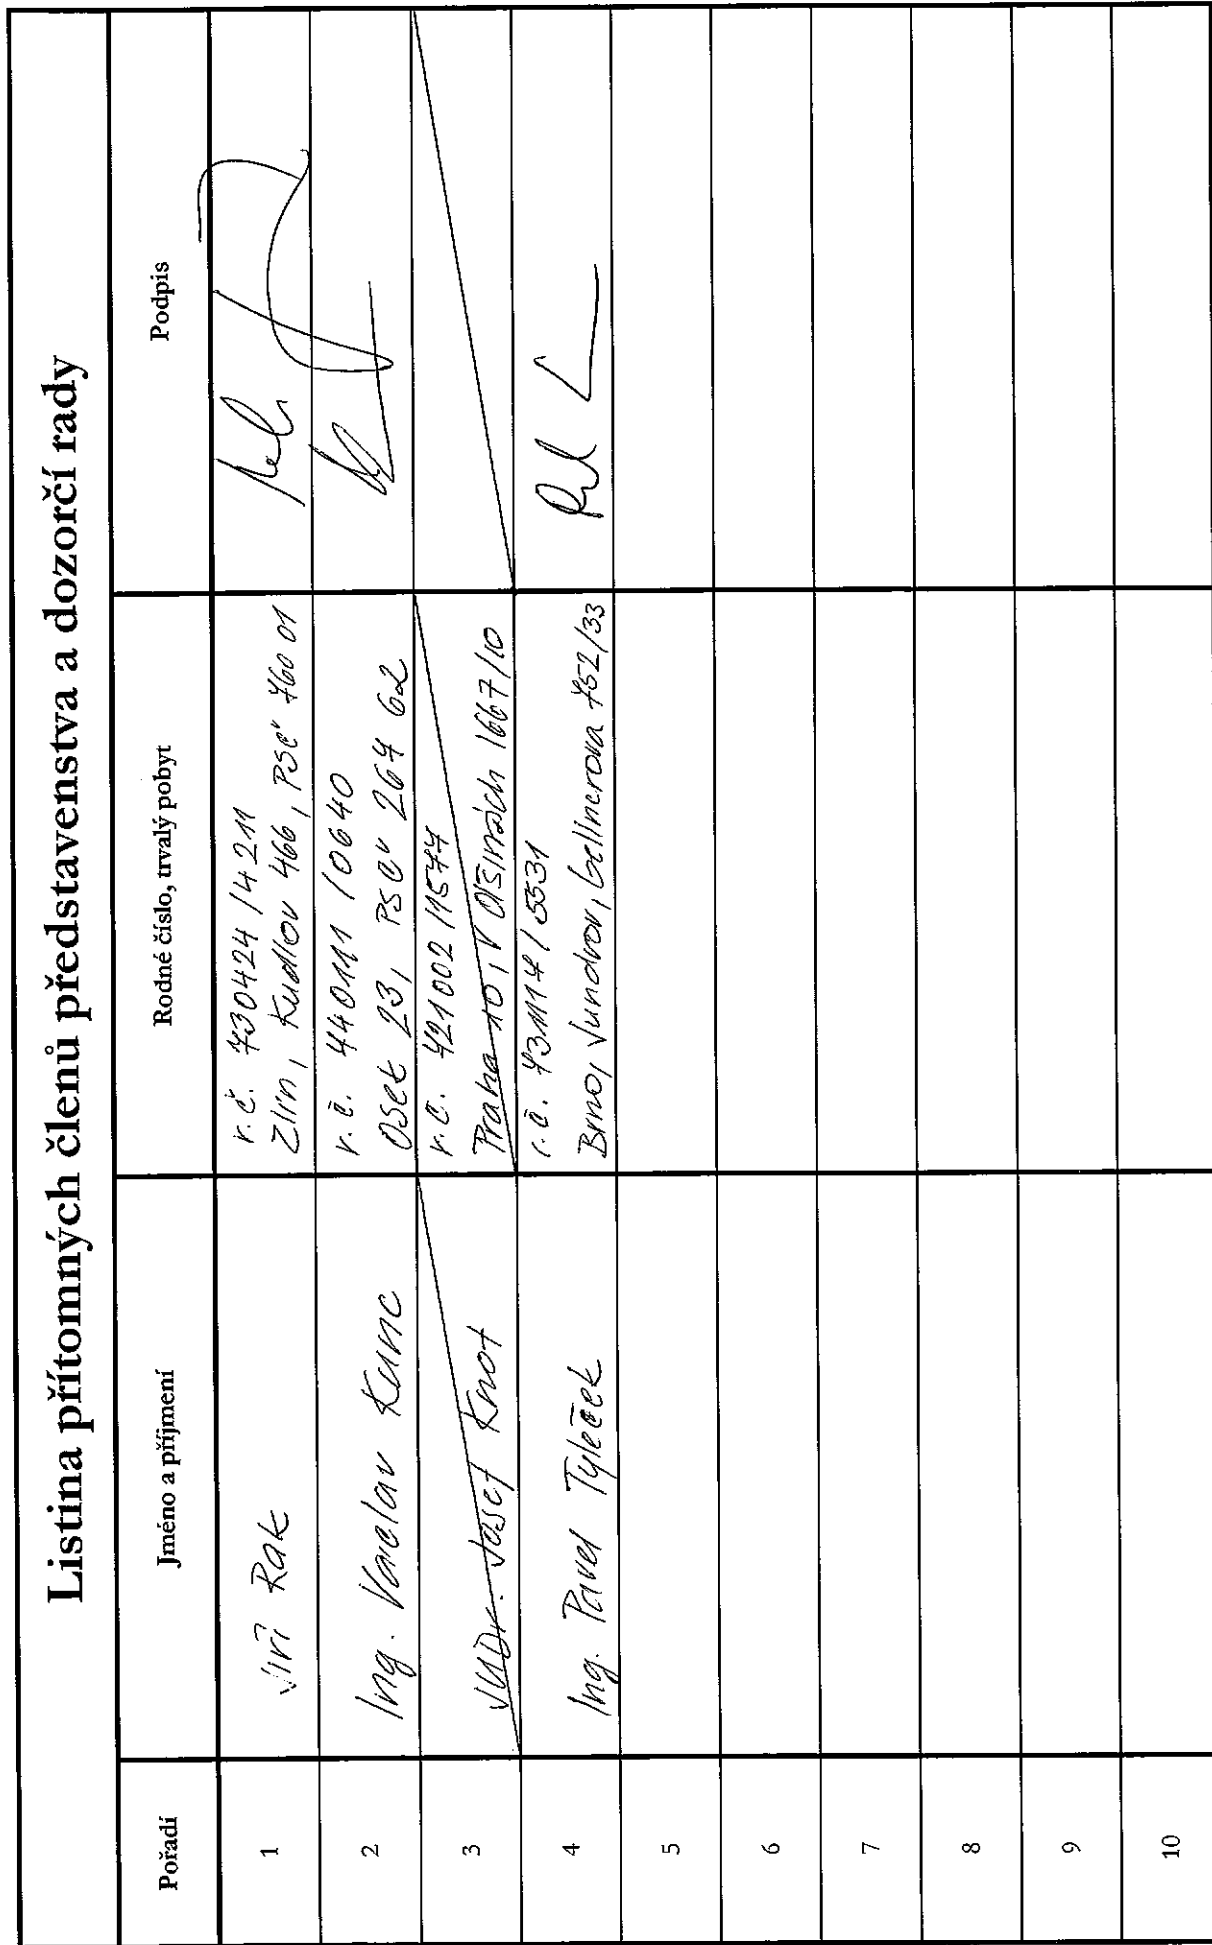 Listina přítomných členů představenstva a dozorčí rady
Pořadí
Jméno a příjmení
Rodné číslo, trvalý pobyt
Podpis
1
Jiří Rak
r.č. 730424/4211
Zlín, Kudlov 466, PSČ 760 01
2
Ing. Václav Kunc
r.č. 440111/0640
Osek 23, PSČ 267 62
3
JUDr. Josef Knot
r.č. 721002/1577
Praha 10, V Olšinách 1667/10
4
Ing. Pavel Tyleček
r.č. 731117/5531
Brno, Jundrov, Gellnerova 752/33
5
6
7
8
9
10